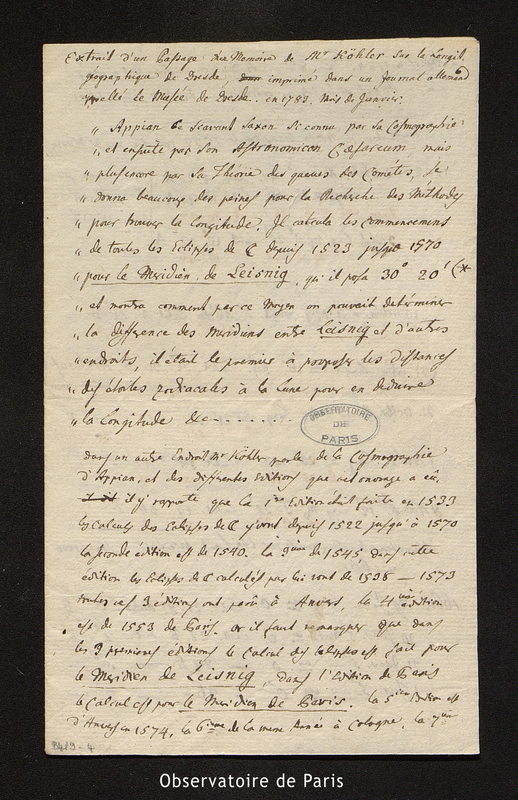 Extrait d'un Passage d'un Memoire de Mr Köhler sur la Longit.
geographique de Dresde, imprimé dans un Journal allemand
appellé le Musée de Dresde. en 1783. Mois de Janvier.
" Appian ce scavant Saxon si connu par sa Cosmographie
" et ensuite par son Astronomicon Cæsareum, mais
" plus encore par sa Théorie des queues des Comètes, se
" donna beaucoup des peines pour la Recherche des Méthodes
" pour trouver la Longitude. Il calcula les Commencemens
" de toutes les Eclipses de ☾ depuis 1523 jusqu'à 1570
" pour le Meridien de Leisnig, qu'il posa 30° 20'
" et montra comment par ce Moyen on pouvait determiner
" la différence des Meridiens entre Leisnig et d'autres
" endroits, il était le premier à proposer les Distances
" des étoiles zodiacales à la Lune pour en deduire
" la Longitude &c.......
OBSERVATOIRE
DE
PARIS
dans un autre Endroit Mr Köhler parle de la Cosmographie
d'Appian, et des differentes Editions que cet ouvrage a eû.
il y rapporte que la 1ere Edition était faite en 1533
les calculs des Eclipses de ☾ y vont depuis 1522 jusqu'à 1570
la seconde édition est de 1540. la 3eme de 1545, dans cette
édition les Eclipses de ☾ calculés par lui vont de 1538 — 1573
toutes ces 3 éditions ont paru à Anvers. la 4ieme édition
est de 1553 de Paris. or il faut remarquer que dans
les 3 premieres éditions le Calcul des eclipses est fait pour
le Meridien de Leisnig, dans l'Edition de Paris
le Calcul est pour le Meridien de Paris. la 5ieme Edition est
d'Anvers en 1574, la 6eme de la meme Année à Cologne, la 7eme
Observatoire de Paris